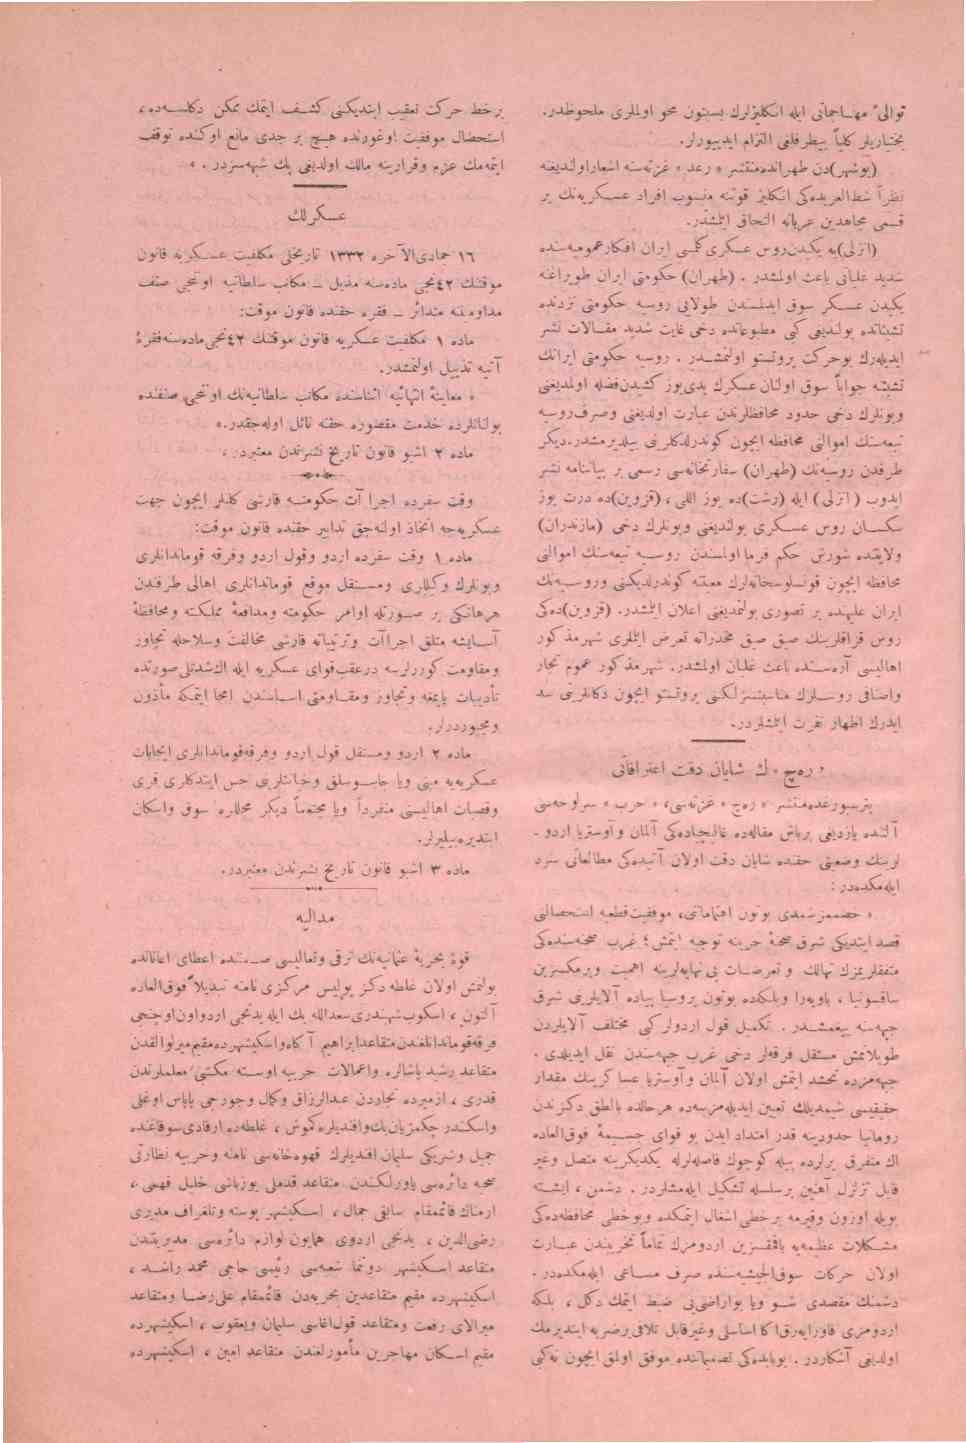 توالیٔ مهاجماتی ایله انكلیزلرك بستون محو اولملری ملحوظدر.
بختیاریلر كلیاً بیطرفلغی التزام ایدییورلر.
(بوشهر)دن طهرانده‌منتشر « رعد » غزته‌سنه اشعاراولندیغنه
نظراً شط‌العربده‌كی انكلیز قوتنه منسوب افراد عسكریه‌نك بر
قسمی مجاهدین عربانه التحاق ایتمشدر.
(انزلی)یه یكیدن‌روس عسكری‌كلمسی ایران افكارعمومیه‌سنده
شدید غلیانی باعث اولمشدر . (طهران) حكومتی ایران طوپراغنه
یكیدن عسكر سوق ایدلمسندن طولایی روسیه حكومتی نزدنده
تشبثاتده بولندیغی كبی مطبوعاتده دخی غایت شدید مقالات نشر
ایدیله‌رك بوحركت پروتستو اولنمشدر . روسیه حكومتی ایرانك
تشبثنه جواباً سوق اولنان عسكرك یدی‌یوز كشیدن‌فضله اولمدیغنی
وبونلرك دخی حدود محافظلرندن عبارت اولدیغنی وصرف‌روسیه
تبعه‌سنك اموالنی محافظه ایچون كوندرلدكلرینی بیلدیرمشدر.دیكر
طرفدن روسیه‌نك (طهران) سفارتخانه‌سی رسمی بر بیاننامه نشر
ایدوب (انزلی) ایله (رشت)ده یوز اللی ، (قزوین)ده درت یوز
سكسان روس عسكری بولندیغنی وبونلرك دخی (مازندران)
ولایتنده شورش حكم فرما اولمسندن روسیه تبعه‌سنك اموالنی
محافظه ایچون قونسلوسخانه‌لرك معیتنه كوندرلدیكنی وروسیه‌نك
ایران علیهنده بر تصوری بولنمدیغنی اعلان ایتمشدر. (قزوین)ده‌كی
روس قزاقلرینك صیق صیق مخدراته تعرض ایتملری شهرمذكور
اهالیسی آره‌سنده باعث غلیان اولمشدر. شهرمذكور عموم تجار
واصنافی روسلرك مناسبتسزلكنی پروتستو ایچون دكانلرینی سد
ایدرك اظهار نفرت ایتمشلردر.
« ره‌چ » ك شایان دقت اعترافاتی
پترسبورغده‌منتشر « ره‌چ » غزته‌سی، « حرب » سرلوحه‌سی
آلتنده یازدیغی برباش مقاله‌ده غالیچیاده‌كی آلمان وآوستریا اردو-
لرینك وضعیتی حقنده شایان دقت اولان آتیده‌كی مطالعاتی سرد
ایله‌مكده‌در :
« خصممزشمدی بوتون اهتماماتنی، موفقیت‌قطعیه استحصالنی
قصد ایتدیكی شرق صحنهٔ حربنه توجیه ایتمش؛ غرب صحنه‌سنده‌كی
متفقلریمزك تهالك و تعرضات بی نهایه‌لرینه اهمیت ویرمكسزین
ساقسونیا ، باویه‌را وبلكه‌ده بوتون پروسیا پیاده آلایلرینی شرق
جبهه‌سنه ییغمشدر . تكمیل قول اردولركی مختلف آلایلردن
طوپلانمش مستقل فرقه‌لر دخی غرب جبهه‌سندن نقل ایدیلدی .
جبهه‌مزده تحشد ایتمش اولان آلمان وآوستریا عساكرینك مقدار
حقیقیسی شیمدیلك تعیین ایدیله‌مزسه‌ده هرحالده بالطق دكزندن
رومانیا حدودینه قدر امتداد ایدن بو قوای جسیمهٔ فوق‌العاده
اك متفرق یرلرده بیله كوچوك فاصله‌لرله یكدیكرینه متصل وغیر
قابل تزلزل آهنین برسلسله تشكیل ایله‌مشلردر . دشمن ، ایشته
بویله اوزون وقیریمه برخطی اشغال ایتمكده وبوخطی محافظه‌ده‌كی
مشكلات عظیمه‌یه باقمقسزین اردومزك تماماً تخریبندن عبارت
اولان حركات سوق‌الجیشیه‌سنده صرف مساعی ایله‌مكده‌در .
دشمنك مقصدی شو ویا بواراضی‌یی ضبط ایتمك دكل ، بلكه
اردومزی قاورایه‌رق‌اكا اساسلی وغیرقابل تلافی‌برضربه ایندیرمك
اولدیغی آشكاردر . بوبابده‌كی تصمیماتنده موفق اولمق ایچون نه‌كبی
برخط حركت تعقیب ایتدیكنی كشف ایتمك ممكن دكلسه‌ده ،
استحصال موفقیت اوغورنده هیچ بر جدی مانع اوكنده توقف
ایتمه‌مك عزم وقرارینه مالك اولدیغی پك شبهه‌سزدر . »
عسكرلك
١٦ جمادی‌الآخره ١٣٣٢ تاریخلی مكلفیت عسكریه قانون
موقتنك ٤٢نجی ماده‌سنه مذیل – مكاتب سلطانیه اوننجی صنف
مداومینه متدائر – فقره حقنده قانون موقت:
ماده ١ مكلفیت عسكریه قانون موقتنك ٤٢نجی‌ماده‌سنه‌فقرهٔ
آتیه تذییل اولنمشدر.
« معاینهٔ انتهائیه اثناسنده مكاتب سلطانیه‌نك اوننجی صنفنده
بولنانلرده خدمت مقصوره حقنه نائل اوله‌جقدر.»
ماده ٢ اشبو قانون تاریخ نشرندن معتبردر .
وقت سفرده اجراآت حكومته قارشی كلنلر ایچون جهت
عسكریه‌جه اتخاذ اولنه‌جق تدابیر حقنده قانون موقت:
ماده ١ وقت سفرده اردو وقول اردو وفرقه قوماندانلری
وبونلرك وكیللری ومستقل موقع قوماندانلری اهالی طرفندن
هرهانكی بر صورتله اوامر حكومته ومدافعهٔ مملكته ومحافظهٔ
آسایشه متعلق اجراآت وترتیباته قارشی مخالفت وسلاحله تجاوز
ومقاومت كوررلرسه درعقب‌قوای عسكریه ایله اك‌شدتلی‌صورتده
تأدیبات یاپمغه وتجاوز ومقاومتی اساسندن امحا ایتمكه مأذون
ومجبوردرلر.
ماده ٢ اردو ومستقل قول اردو وفرقه‌قوماندانلری ایجابات
عسكریه‌یه مبنی ویا جاسوسلق وخیانتلرینی حس ایتدكلری قری
وقصبات اهالیسنی منفرداً ویا مجتمعاً دیكر محللره سوق واسكان
ایتدیره‌بیلیرلر.
ماده ٣ اشبو قانون تاریخ نشرندن معتبردر.
مدالیه
قوهٔ بحریهٔ عثمانیه‌نك ترقی وتعالیسی ضمننده اعطای اعاناتده
بولنمش اولان غلطه دكز پولیس مركزی نامنه تبدیلاً فوق‌العاده
آلتون ، اسكوب شهبندری‌سعدالله بك ایله یدنجی اردواون‌اوچنجی
فرقه‌قوماندانلغندن‌متقاعدابراهیم آكاه‌واسكیشهرده‌مقیم‌میرلوالقدن
متقاعد رشید پاشالره واعمالات حربیه اوسته مكتبی معلملرندن
قدری ، ازمیرده تجاردن عبدالرزاق وكمال وجورجی پاپاس اوغلی
واسكندر چكمزیان‌بك‌وافندیلره‌كموش ، غلطه‌ده ارقادی‌سوقاغنده
جمیل وشریكی سلیمان افندیلرك قهوه‌خانه‌سی نامنه وحربیه نظارتی
صحیه دائره‌سی یاورلكندن متقاعد قدملی یوزباشی خلیل فهمی ،
ارمناك قائممقام سابقی جمال ، اسكیشهر پوسته وتلغراف مدیری
رضی‌الدین ، یدنجی اردوی همایون لوازم دائره‌سی مدیریتندن
متقاعد اسكیشهر دونما شعبه‌سی رئیسی حاجی محمد راشد ،
اسكیشهرده مقیم متقاعدین بحریه‌دن قائممقام علی‌رضا ومتقاعد
میرالای رفعت ومتقاعد قول‌اغاسی سلیمان ویعقوب ، اسكیشهرده
مقیم اسكان مهاجرین مأمورلغندن متقاعد امین ، اسكیشهرده